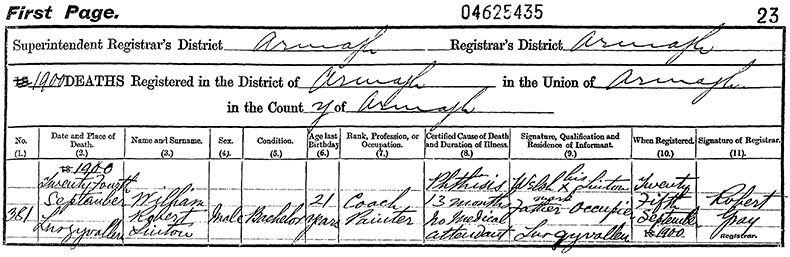 First Page. 04625435 23
Superintendent Registrar's District Armagh Registrar's District Armagh
1900 DEATHS Registered in the District of Armagh in the Union of Armagh
in the County of Armagh
No. (1.) Date and Place of Death. (2.) Name and Surname. (3.) Sex. (4.) Condition. (5.) Age last Birthday (6.) Rank, Profession, or Occupation. (7.) Certified Cause of Death and Duration of Illness. (8.) Signature, Qualification and Residence of Informant. (9.) When Registered. (10.) Signature of Registrar. (11.)
1900
Twenty Fourth Phthisis Welsh his x Sinton Twenty
September William 21 Coach 13 months mark Fifth Robert
381 Robert Male Bachelor years Painter no medical Father Occupier September Gray
Lurgyvallen Sinton attendant Lurgyvallen 1900. Registrar.